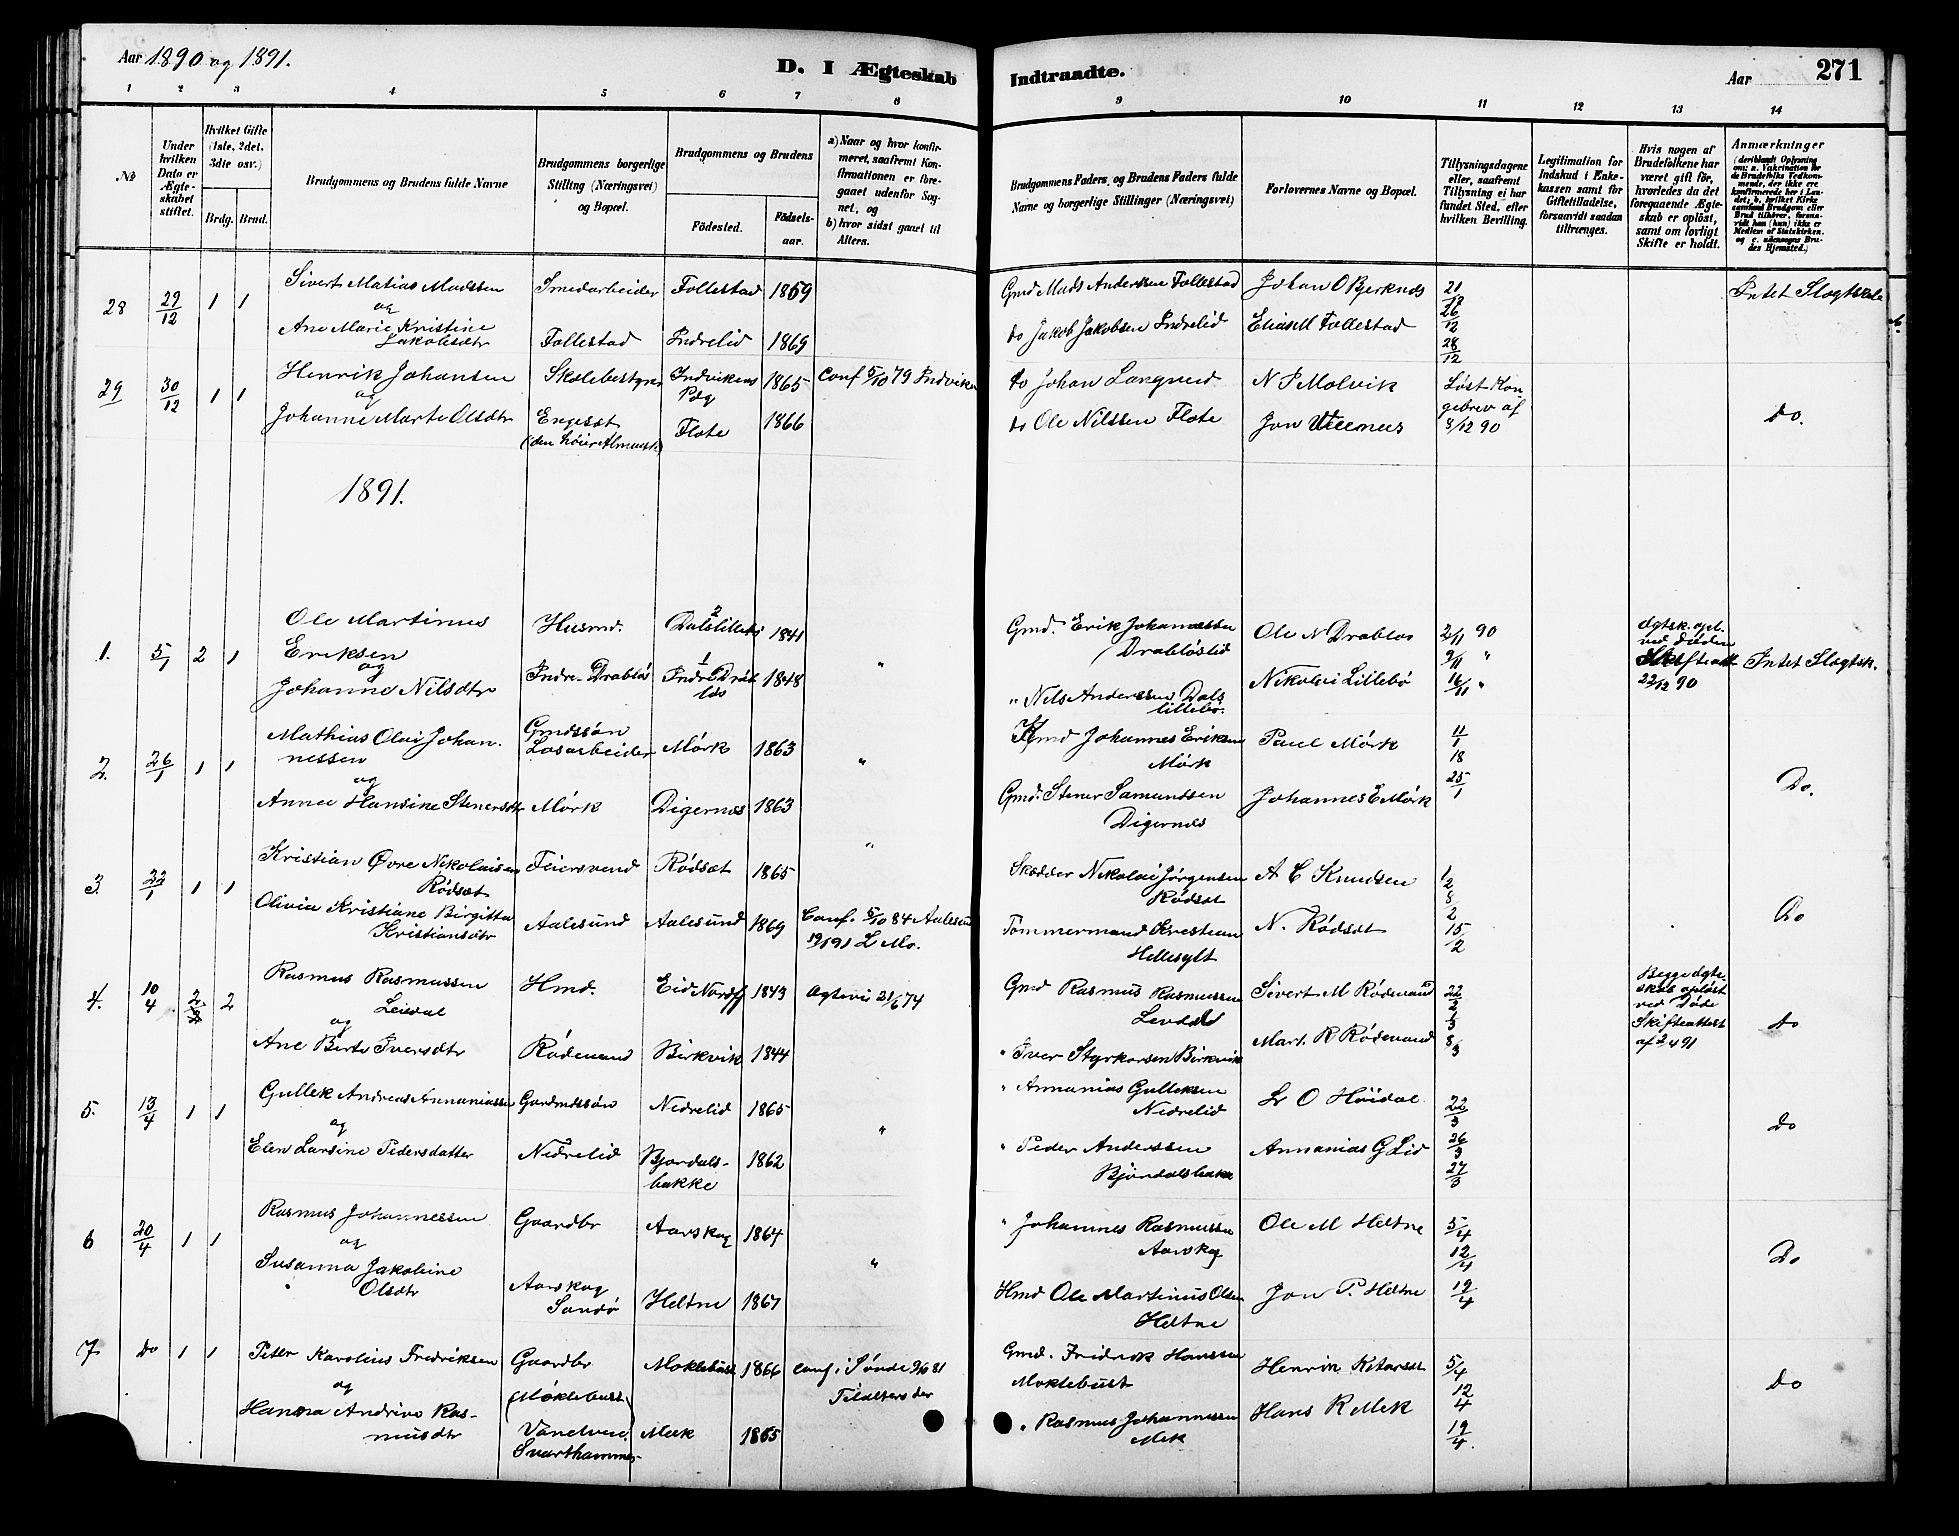 Aar 1890 og 1891.
D. I Ægteskab Indtraadte.
Aar
271
1 2 3 4 5 6 7 8 9 10 11 12 13 14
No
Under hvilken Dato er Ægteskabet stiftet.
Hvilket Gifte (1ste, 2det, 3die osv.)
Brdg. Brud.
Brudgommens og Brudens fulde Navne
Brudgommens borgerlige Stilling (Næringsvei) og Bopæl.
Brudgommens og Brudens
Fødested.
Fødselsaar.
a) Naar og hvor konfirmeret, saafremt Konfirmationen er foregaaet udenfor Sognet, og
b) hvor sidst gaaet til Alters.
Brudgommens Faders, og Brudens Faders fulde Navne og borgerlige Stillinger (Næringsvei)
Forlovernes Navne og Bopæl.
Tillysningsdagene eller, saafremt Tillysning ei har fundet Sted, efter hvilken Bevilling.
Legitimation for Indskud i Enkekassen samt for Giftetilladelse, forsaavidt saadan tiltrænges.
Hvis nogen af Brudefolkene har været gift før, hvorledes da det foregaaende Ægteskab er opløst, samt om lovligt Skifte er holdt.
Anmærkninger
28 29/12 1 1 Sivert Matias Madssen Smedarbeider Follestad 1869 Gmd Mads Anderssen Follestad Johan O Bjerknes 21/12 Intet Slægtskab
og 26/12
Ane Marie Kristine Jakobsdtr Follestad Indrelid 1869 do Jakob Jakobsen Indrelid Elias M Follestad 28/12
29 30/12 1 1 Henrik Johansen Skolebestyrer Indvikens Pdg 1865 Conf 5/10 79 Indviken do Johan Langund N P Molvik Løst Kongebrev af 8/12 90 Do.
og
Johanne Marte Olsdtr Engeset Flote 1866 do Ole Nilssen Flote Jon
1891.
1. 5/1 2 1 Ole Martinus Eriksen Husmd. Dalslillebø 1841 " Gmd. Erik Johannessen Drabløslid Ole N Drabløs 2/11 90 Ægtsk. opl. ved Døden Skifteatt 22/12 90 Intet Slægtsk.
og 9/11 "
Johanne Nilsdtr Indre Drabløs Indre Drabløs 1848 " Nils Anderssen Dalslillebø Nikolai Lillebø 16/11 "
2. 26/1 1 1 Mathias Olai Johannessen Gmdssøn Løsarbeider Mørk 1863 " Gmd Johannes Eriksen Mørk Paul Mørk 11/1 Do.
og 18
Anne Hansine Stenersdtr Mørk Digernæs 1863 Gmd. Stener Samundsen Digernæs Johannes E Mørk 25/1
3. 22/1 1 1 Kristian Øvre Nikolaisen Rødsæt Feiersvend Rødsæt 1865 " Skrædder Nikolai Jørgensen Rødsæt A C Knudsen 1/2 8/2 Do
Olivia Kristiane Birgitta Kristiansdtr Aalesund Aalesund 1869 Conf. 5/10 84 Aalesund Tømmermand Kristian Hellesylt N. Rødsæt 15/2
4. 10/4 2 2 Rasmus Rasmussen Leivdal Hmd. Eid Nordfj 1843 Agtevis 21/6 74 Gmd Rasmus Rasmussen Levdal Sivert M Rødenand 22/2 Begge Ægteskab opløst ved Døde Skifteattest af 2/4 91 Do
og 1/3
Ane Berte Iversdtr Rødenand Birkvik 1844 " Iver Styrkorsen Birkvik Mart. R Rødenand 8/3
5. 13/4 1 1 Gullek Andreas Annaniassen Gardmdssøn Nedrelid 1865 " " Annanias Gulleksen Nedrelid Lr O Høidal 22/3 Do
og 26/3
Elen Larsine Pedersdatter Nedrelid Bjordalsbakke 1862 " Peder Anderssen Bjørdalsbakke Annanias G Lid 27/3
6 20/4 1 1 Rasmus Johannessen Gaardbr Aarskog 1864 " " Johannes Rasmussen Aarskog Ole M Heltne 5/4 Do
og 12/4
Susanna Jakobine Olsdtr Aarskog Sandø Heltne 1867 Hmd Ole Martinus Olsen Heltne Jon P. Heltne 19/4
7. Do 1 1 Peter Karolius Fredriksen Gaardbr Moklebust 1866 Conf i Sønde 9/10 81 Gmd. Fridrik Hanssen Moklebust Henrik 5/4 Do
og (Moklebust) 12/4
Hanna Andrine Rasmusdtr Svarthammer Mek 1865 " Rasmus Johannessen Mek Hans R Mek 19/4.